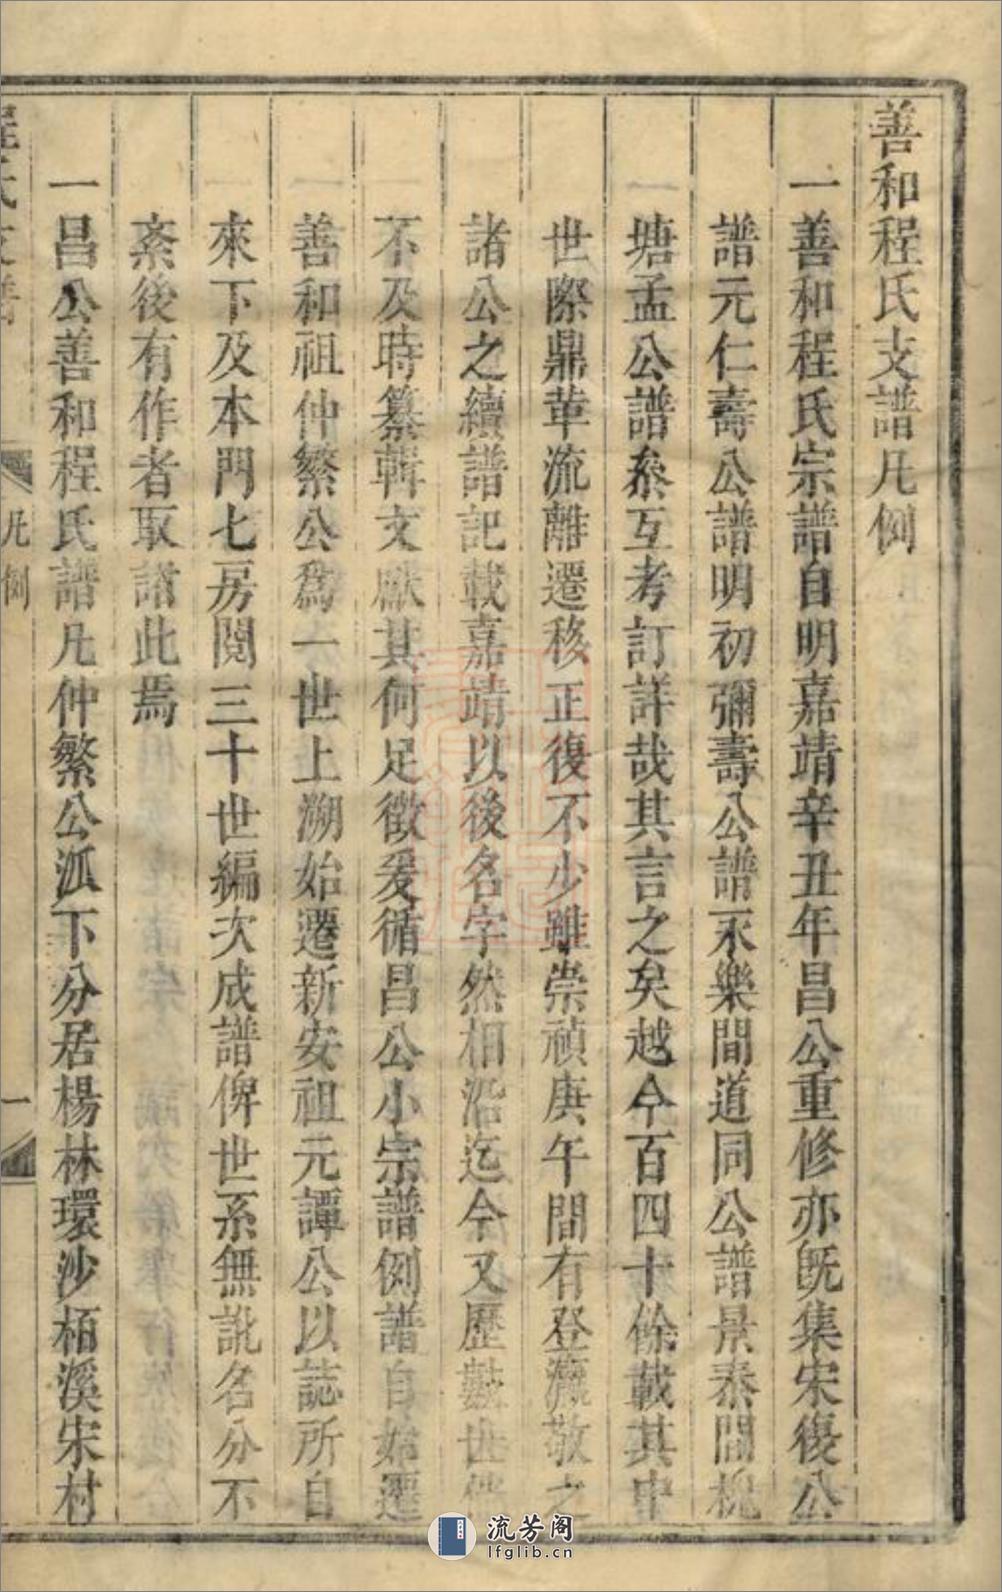 善和程氏支譜凡例
一善和程氏宗譜自明嘉靖辛丑年昌公重修亦既集宋復公
譜元仁壽公譜明初彌壽公譜永樂間道同公譜景泰間槐
塘孟公譜叅互考訂詳哉其言之矣越今百四十餘載其中
世際鼎革流離遷移正復不少雖崇禎庚午間有登瀛敬之
諸公之續譜記載嘉靖以後名字然相沿迄今又歷數世儻
不及時纂輯文獻其何足徵爰循昌公小宗譜例譜自始遷
善和祖仲繁公爲一世上溯始遷新安祖元譚公以誌所自
來下及本門七房閱三十世編次成譜俾世系無訛名分不
紊後有作者取諸此焉
一昌公善和程氏譜凡仲繁公派下分居楊林環沙栢溪宋村
程氏支譜
凡例
一
流芳阁
lfglib.cn